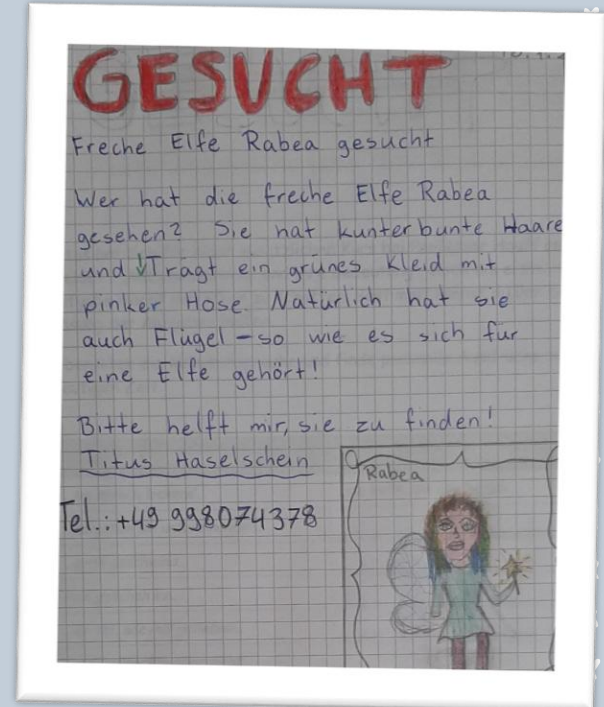 GESUCHT
Freche Elfe Rabea gesucht
Wer hat die freche Elfe Rabea
gesehen? Sie hat kunterbunte Haare
und Trägt ein grünes Kleid mit
pinker Hose. Natürlich hat sie
auch Flügel - so wie es sich für
eine Elfe gehört!
Bitte helft mir, sie zu finden!
Titus Haselschein
Rabea
Tel.: +49 998074378